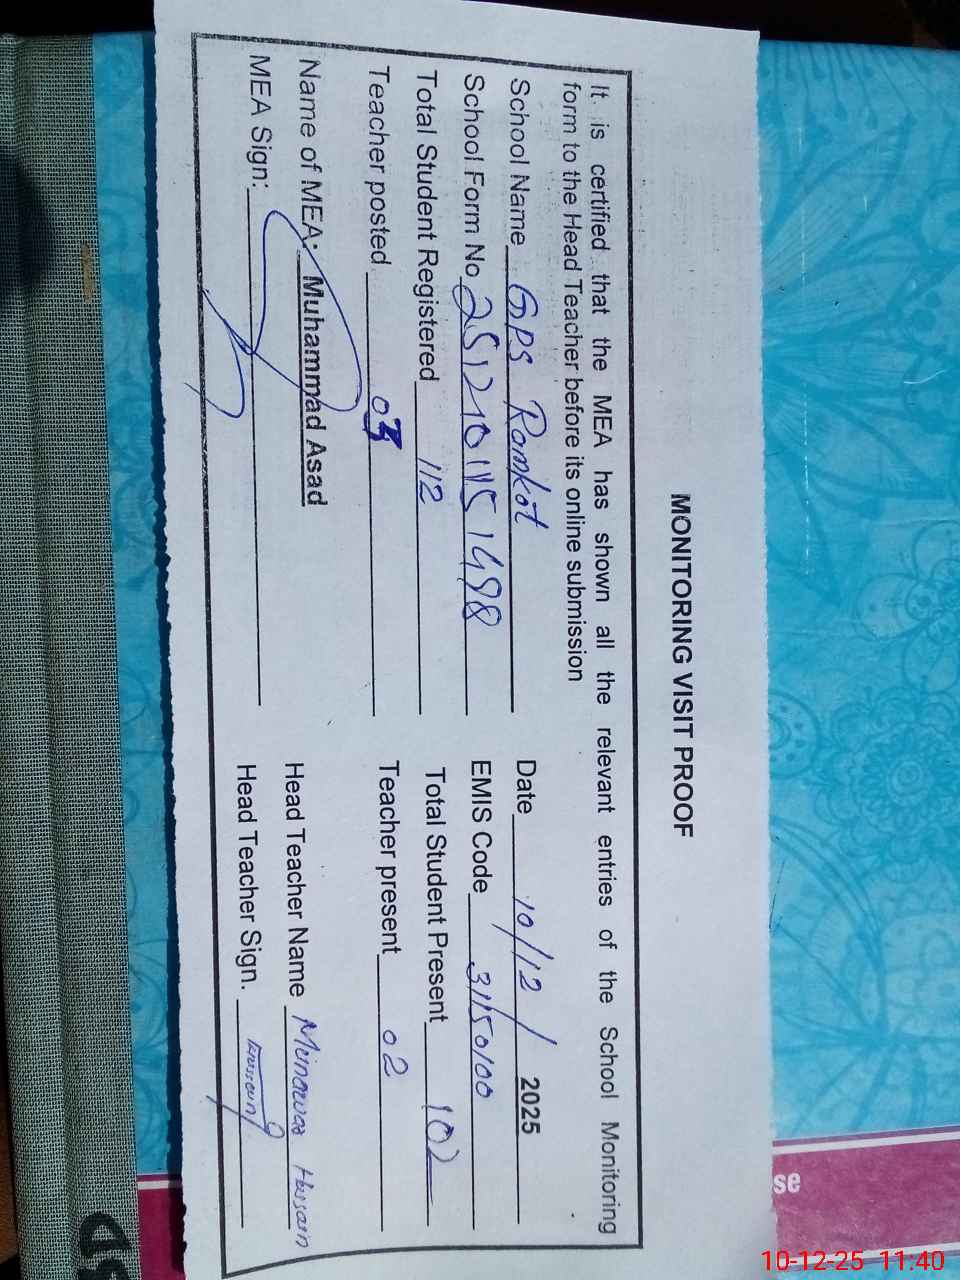 MONITORING VISIT PROOF
It is certified that the MEA has shown all the relevant entries of the School Monitoring
form to the Head Teacher before its online submission
School Name GPS Ramkot Date 10/12/ 2025
School Form No 2512101151498 EMIS Code 31150100
Total Student Registered 112 Total Student Present 102
Teacher posted 03 Teacher present 02
Name of MEA: Muhammad Asad Head Teacher Name Munawar Hussain
MEA Sign: Head Teacher Sign. Hussain
se
10-12-25 11:40